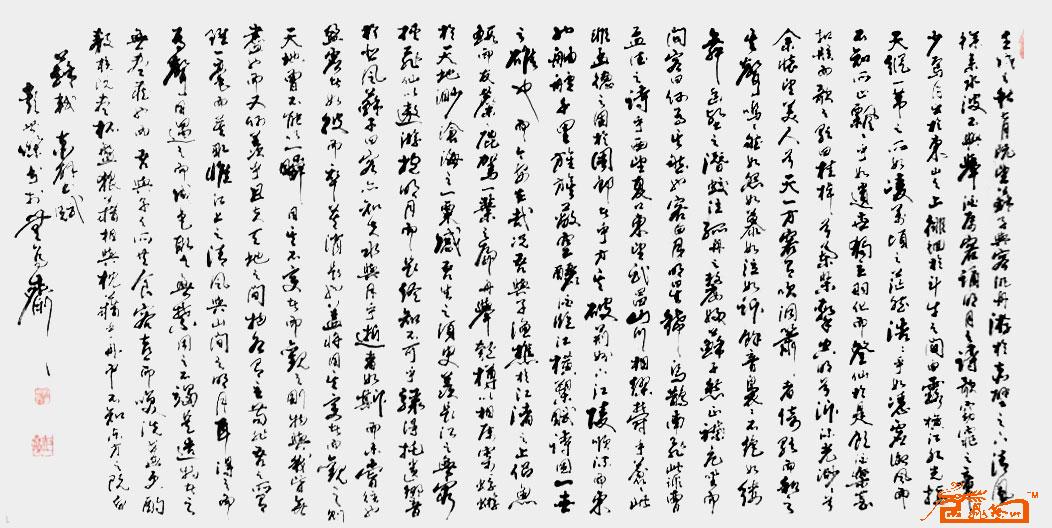 壬戌之秋七月既望蘇子與客泛舟游於赤壁之下清風
徐來水波不興舉酒屬客誦明月之詩歌窈窕之章
少焉月出於東山之上徘徊於斗牛之間白露橫江水光接
天縱一葦之所如凌萬頃之茫然浩浩乎如馮虛御風而
不知所止飄飄乎如遺世獨立羽化而登仙於是飲酒樂甚
扣舷而歌之歌曰桂棹兮蘭槳擊空明兮泝流光渺渺兮
余懷望美人兮天一方客有吹洞簫者倚歌而和之
其聲嗚嗚然如怨如慕如泣如訴餘音裊裊不絕如縷
舞幽壑之潛蛟泣孤舟之嫠婦蘇子愀然正襟危坐而
問客曰何為其然也客曰月明星稀烏鵲南飛此非曹
孟德之詩乎西望夏口東望武昌山川相繆鬱乎蒼蒼此
非孟德之困於周郎者乎方其破荊州下江陵順流而東
也舳艫千里旌旗蔽空釃酒臨江橫槊賦詩固一世
之雄也而今安在哉況吾與子漁樵於江渚之上侶魚
蝦而友麋鹿駕一葉之扁舟舉匏樽以相屬寄蜉蝣
於天地渺滄海之一粟哀吾生之須臾羨長江之無窮
挾飛仙以遨游抱明月而長終知不可乎驟得托遺響
於悲風蘇子曰客亦知夫水與月乎逝者如斯而未嘗往也
盈虛者如彼而卒莫消長也蓋將自其變者而觀之則
天地曾不能以一瞬自其不變者而觀之則物與我皆無
盡也而又何羨乎且夫天地之間物各有主苟非吾之所有
雖一毫而莫取惟江上之清風與山間之明月耳得之而
為聲目遇之而成色取之無禁用之不竭是造物者之
無盡藏也而吾與子之所共食客喜而笑洗盞更酌
肴核既盡杯盤狼藉相與枕藉乎舟中不知東方之既白
蘇軾赤壁賦
彭